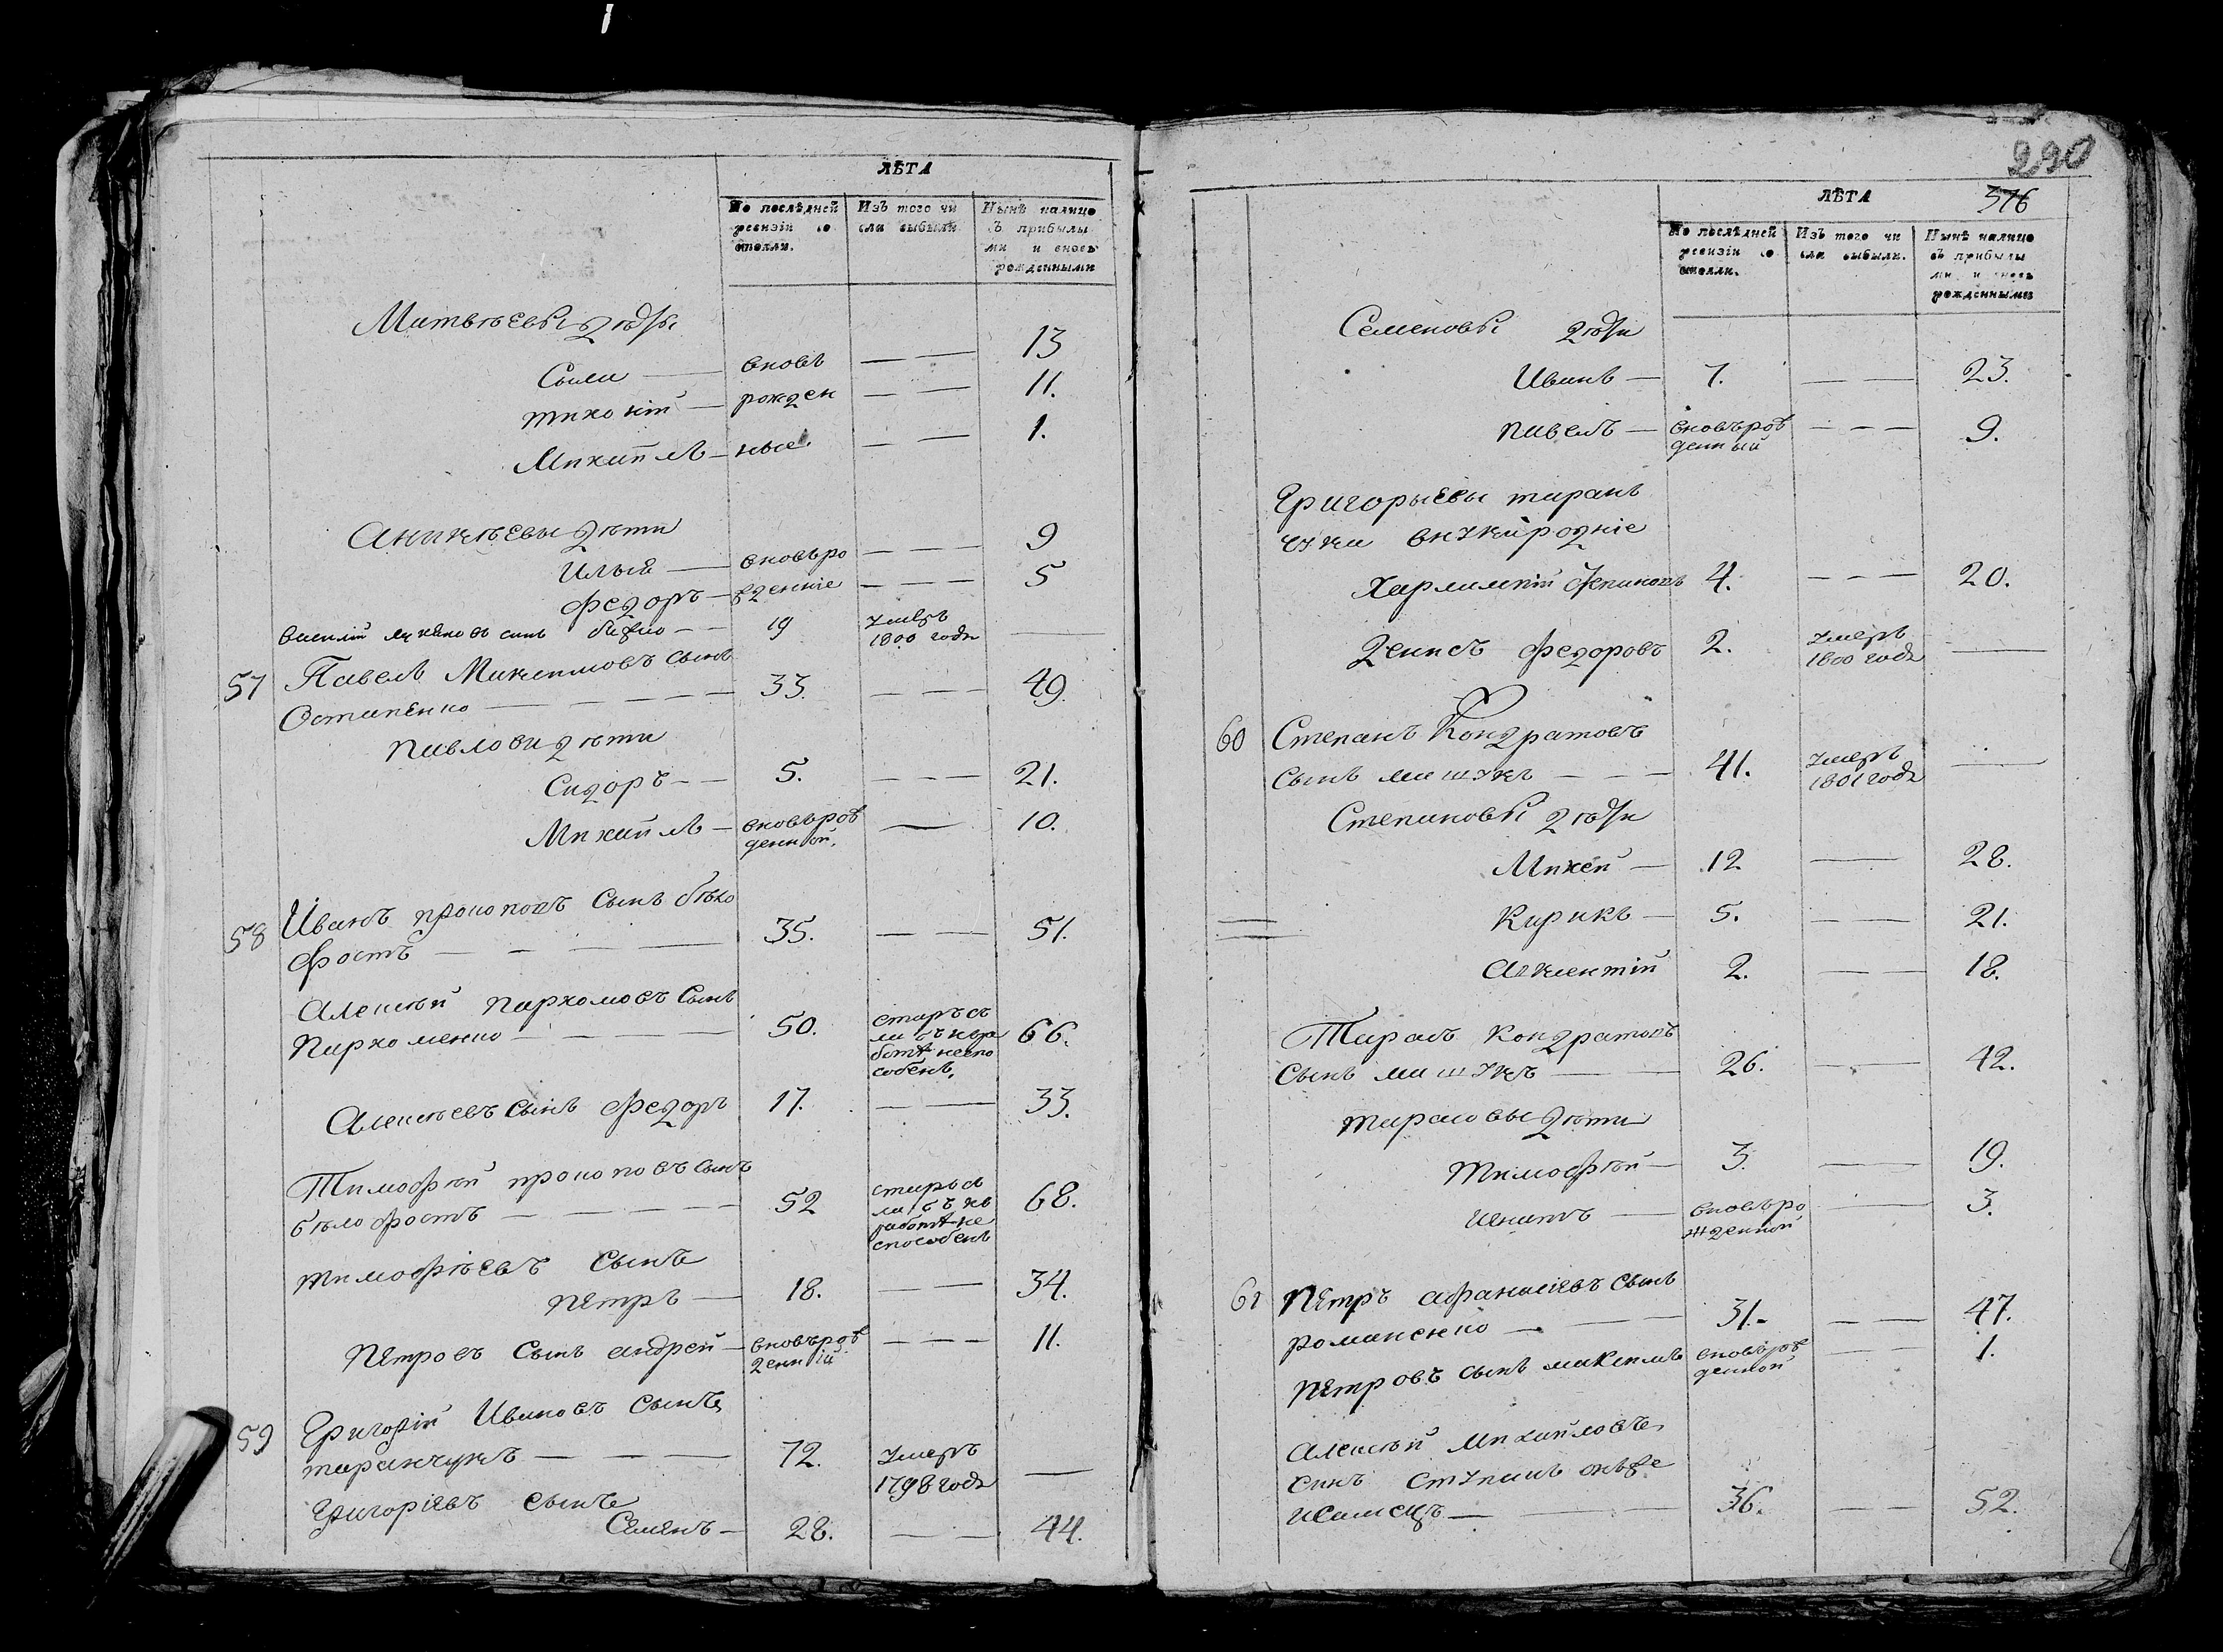 ЛѢТА
По послѣдней ревизіи состояли.
Изъ того числа выбыли
Нынѣ налицо съ прибылыми и вновь рожденными
Матвѣевы дѣти
13
Сыли — вновь — —
тихоній — рожден — — 11.
Михайлъ — ные. — — 1.
Аникѣевы дѣти
Илья — вновьро — — — 9
Федоръ — жденніе — — — 5
василій сынъ — — 19 умеръ 1800 года —
57 Павелъ Максимовъ сынъ
Остапенко — — — — 33. — — — 49.
павлови дѣти
Сидоръ — — 5. — — — 21.
Михайлъ — вновьрож денной. — 10.
58 Иванъ прокоповъ сынъ бѣло
фостъ — — — — 35. — — 51.
Алексѣй пархомовъ сынъ
пархоменко — — — — 50. старъ съ лѣтъ къ ра ботѣ неспо собенъ, 66.
Алексѣевъ сынъ федоръ 17. — 33.
Тимофѣй прокоповъ сынъ
бѣлофостъ — — — — 52 старъ съ лѣтъ къ работѣ не способенъ 68.
тимофѣевъ сынъ
петръ — 18. — — 34.
петровъ сынъ андрей — вновьрож денній — — — 11.
59 Григорій Ивановъ сынъ
таранчукъ — — — 72. умеръ 1798 года —
Григоріевъ сынъ
Семенъ — 28. — — 44.
290
576
ЛѢТА
По послѣдней ревизіи состояли.
Изъ того числа выбыли.
Нынѣ налицо съ прибылыми и вновь рожденными
Семеновы дѣти
Иванъ — 7. — — 23.
павелъ — вновърож денный — — — 9.
Григорьевы таран
чука внукиродніе
Харлампій 4. — — — 20.
денисъ федоровъ 2. умеръ 1800 года —
60 Степанъ Кондратовъ
сынъ мишукъ — — — 41. умеръ 1801 года —
Степановы дѣти
Михей — 12 — 28.
Кирикъ — 5. — — 21.
Авксентій 2. — 18.
Тарасъ кондратовъ
сынъ мишукъ — — 26. — — 42.
тарасовы дѣти
тимофѣй — 3. — 19.
игнатъ — вновьро жденной — 3.
61 петръ афанасіевъ сынъ
романенко — — — 31. — — 47.
петровъ сынъ максимъ вновьрож денной — — 1.
Алексѣй михайловъ
синъ
— — 36. — — 52.